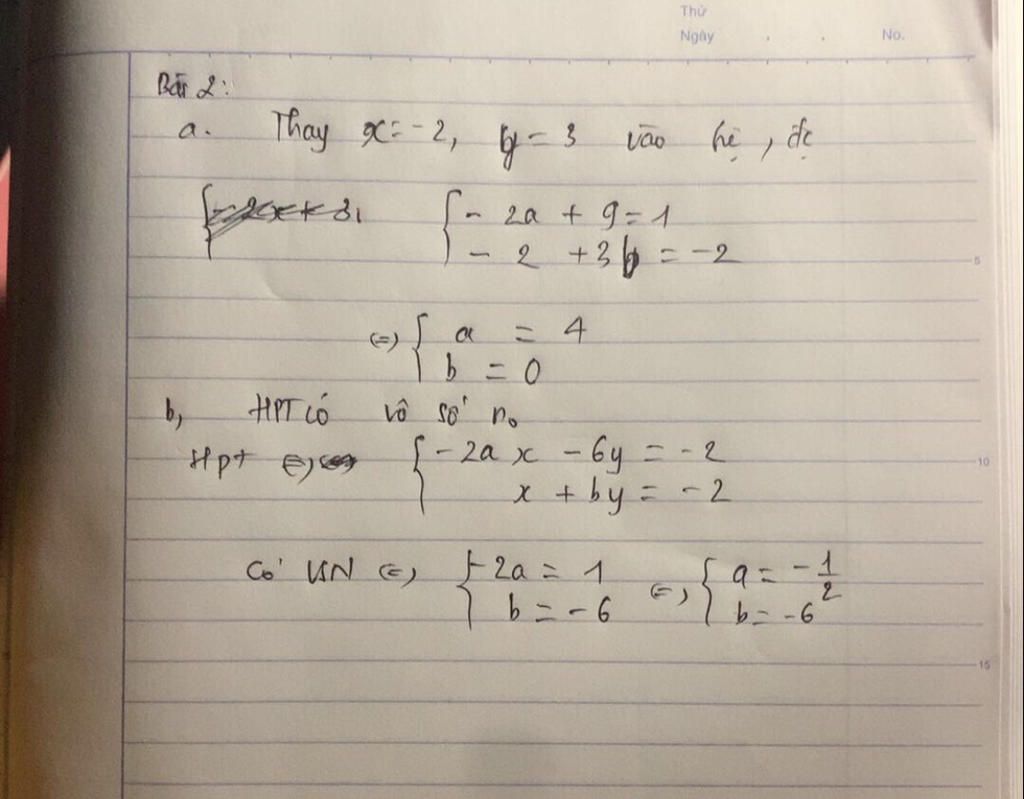 Thứ
Ngày . . No.
Bài 2:
a. Thay x = -2, y = 3 vào hệ, đc
{ - 2a + 9 = 1
- 2 + 3b = -2
5
(=) { a = 4
b = 0
b, HPT có vô số no
Hpt (=) { -2a x - 6y = -2
10
x + by = -2
Có VSN (=) { -2a = 1 (=) { a = -1/2
b = -6 b = -6
15